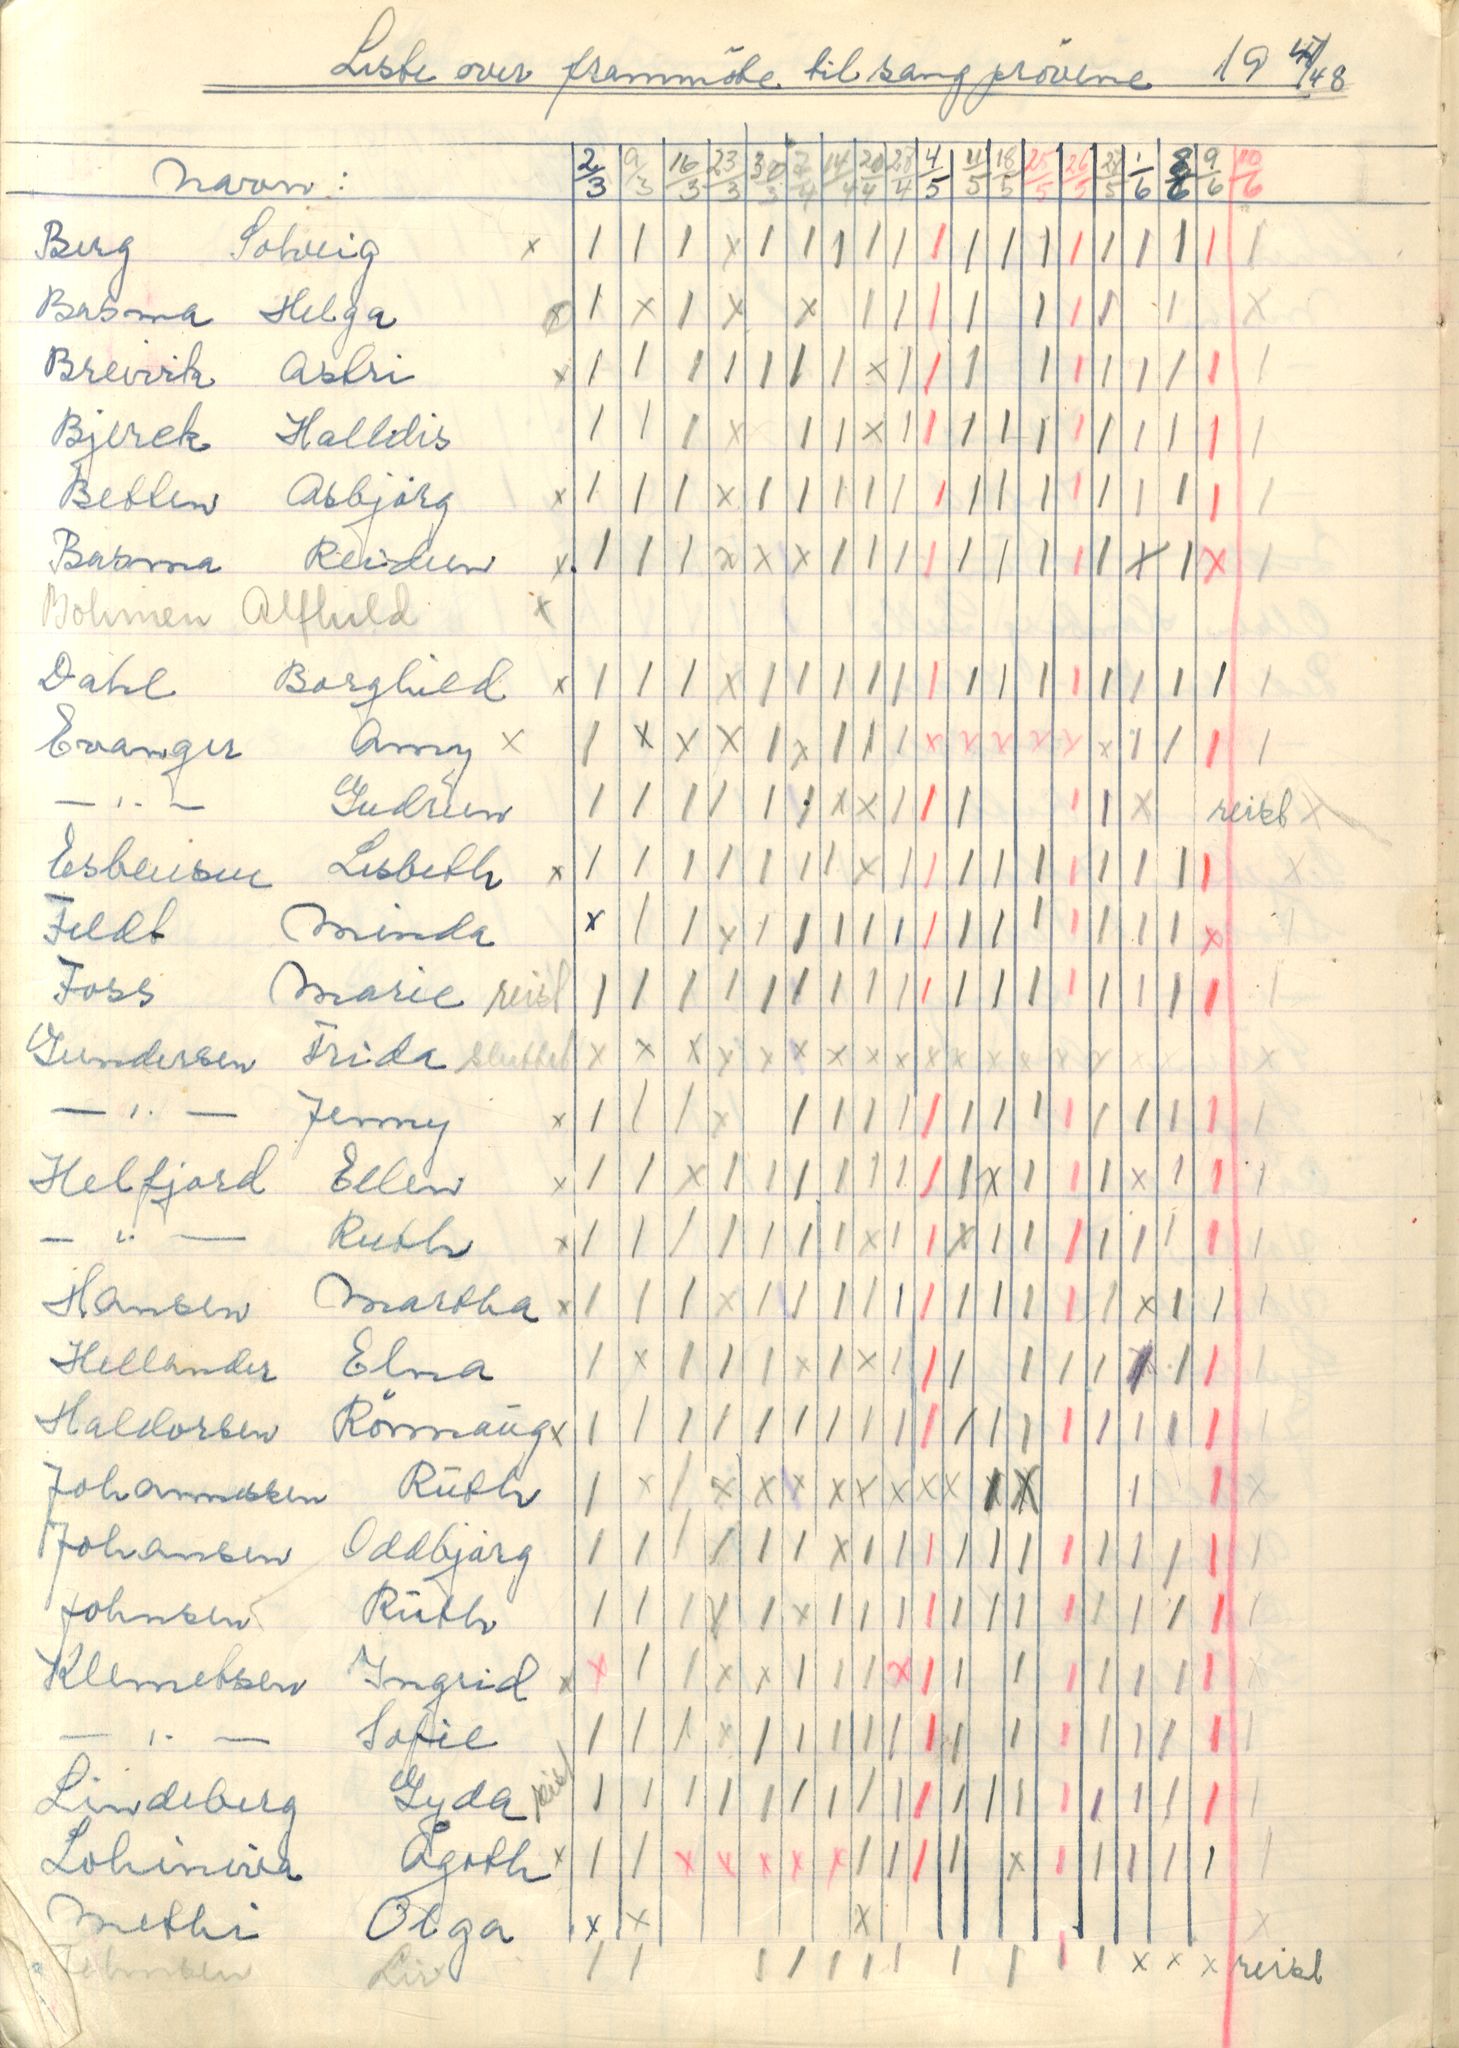 Liste over frammöte til sangprövene 19 47/48
Navn: 2/3 9/3 16/3 23/3 30/3 7/4 14/4 20/4 28/4 4/5 11/5 18/5 25/5 26/5 28/5 1/6 8/6 9/6 10/6
Berg Solveig x | | | x | | | | | | | | | | | | | | |
Basma Helga x | x | x x | | | | | | | | | x
Breivik Astri x | | | | | | | x | | | | | | | | | |
Bjerek Halldis | | | x | | x | | | | | | | | | | |
Betten Asbjörg x | | | x | | | | | | | | | | | | | | |
Basma Reidun x | | | x x x | | | | | | | | | x | x |
Bohinen Alfhild x
Dahl Borghild x | | | x | | | | | | | | | | | | | | |
Evanger Amy x | x x x | x | | | x x x x x x | | | |
— " — Gudrun | | | | | | x x | | | | | x reist x
Esbensen Lisbeth x | | | | | | | x | | | | | | | | | | x
Feldt Minda x | | x | | | | | | | | | | | | | x
Foss Marie reist | | | | | | | | | | | | | | | | | | |
Gundersen Frida sluttet x x x x x x x x x x x x x x x x x x
— " — Jenny x | | | x | | | | | | | | | | | | | |
Helfjord Ellen x | | x | | | | | | | | x | | | x | | |
— " — Ruth x | | | | | | | x | | x | | | | | | | |
Hansen Martha x | | | x | | | | | | | | | | | x | | |
Hellander Elna | x | | | x | x | | | | | | x | | |
Haldorsen Rönnaug x | | | | | | | | | | | | | | | | | | |
Johannessen Ruth | x | x x x x x x x x x x | | x
Johansen Oddbjörg | | | | | | x | | | | | | | | | | | |
Johnsen Ruth | | | | | x | | | | | | | | | | | | |
Klemetsen Ingrid x x | | x x | | | x | | | | | | | | x
— " — Sofie | | | x | | | | | | | | | | | | | |
Lindeberg Gyda reist | | | | | | | | | | | | | | | | | | |
Lohiniva Agoth x | | x x x x x | | | | x | | | | | |
Methi Olga x x x x
Johnsen Liv | | | | | | | | | | | x x x reist